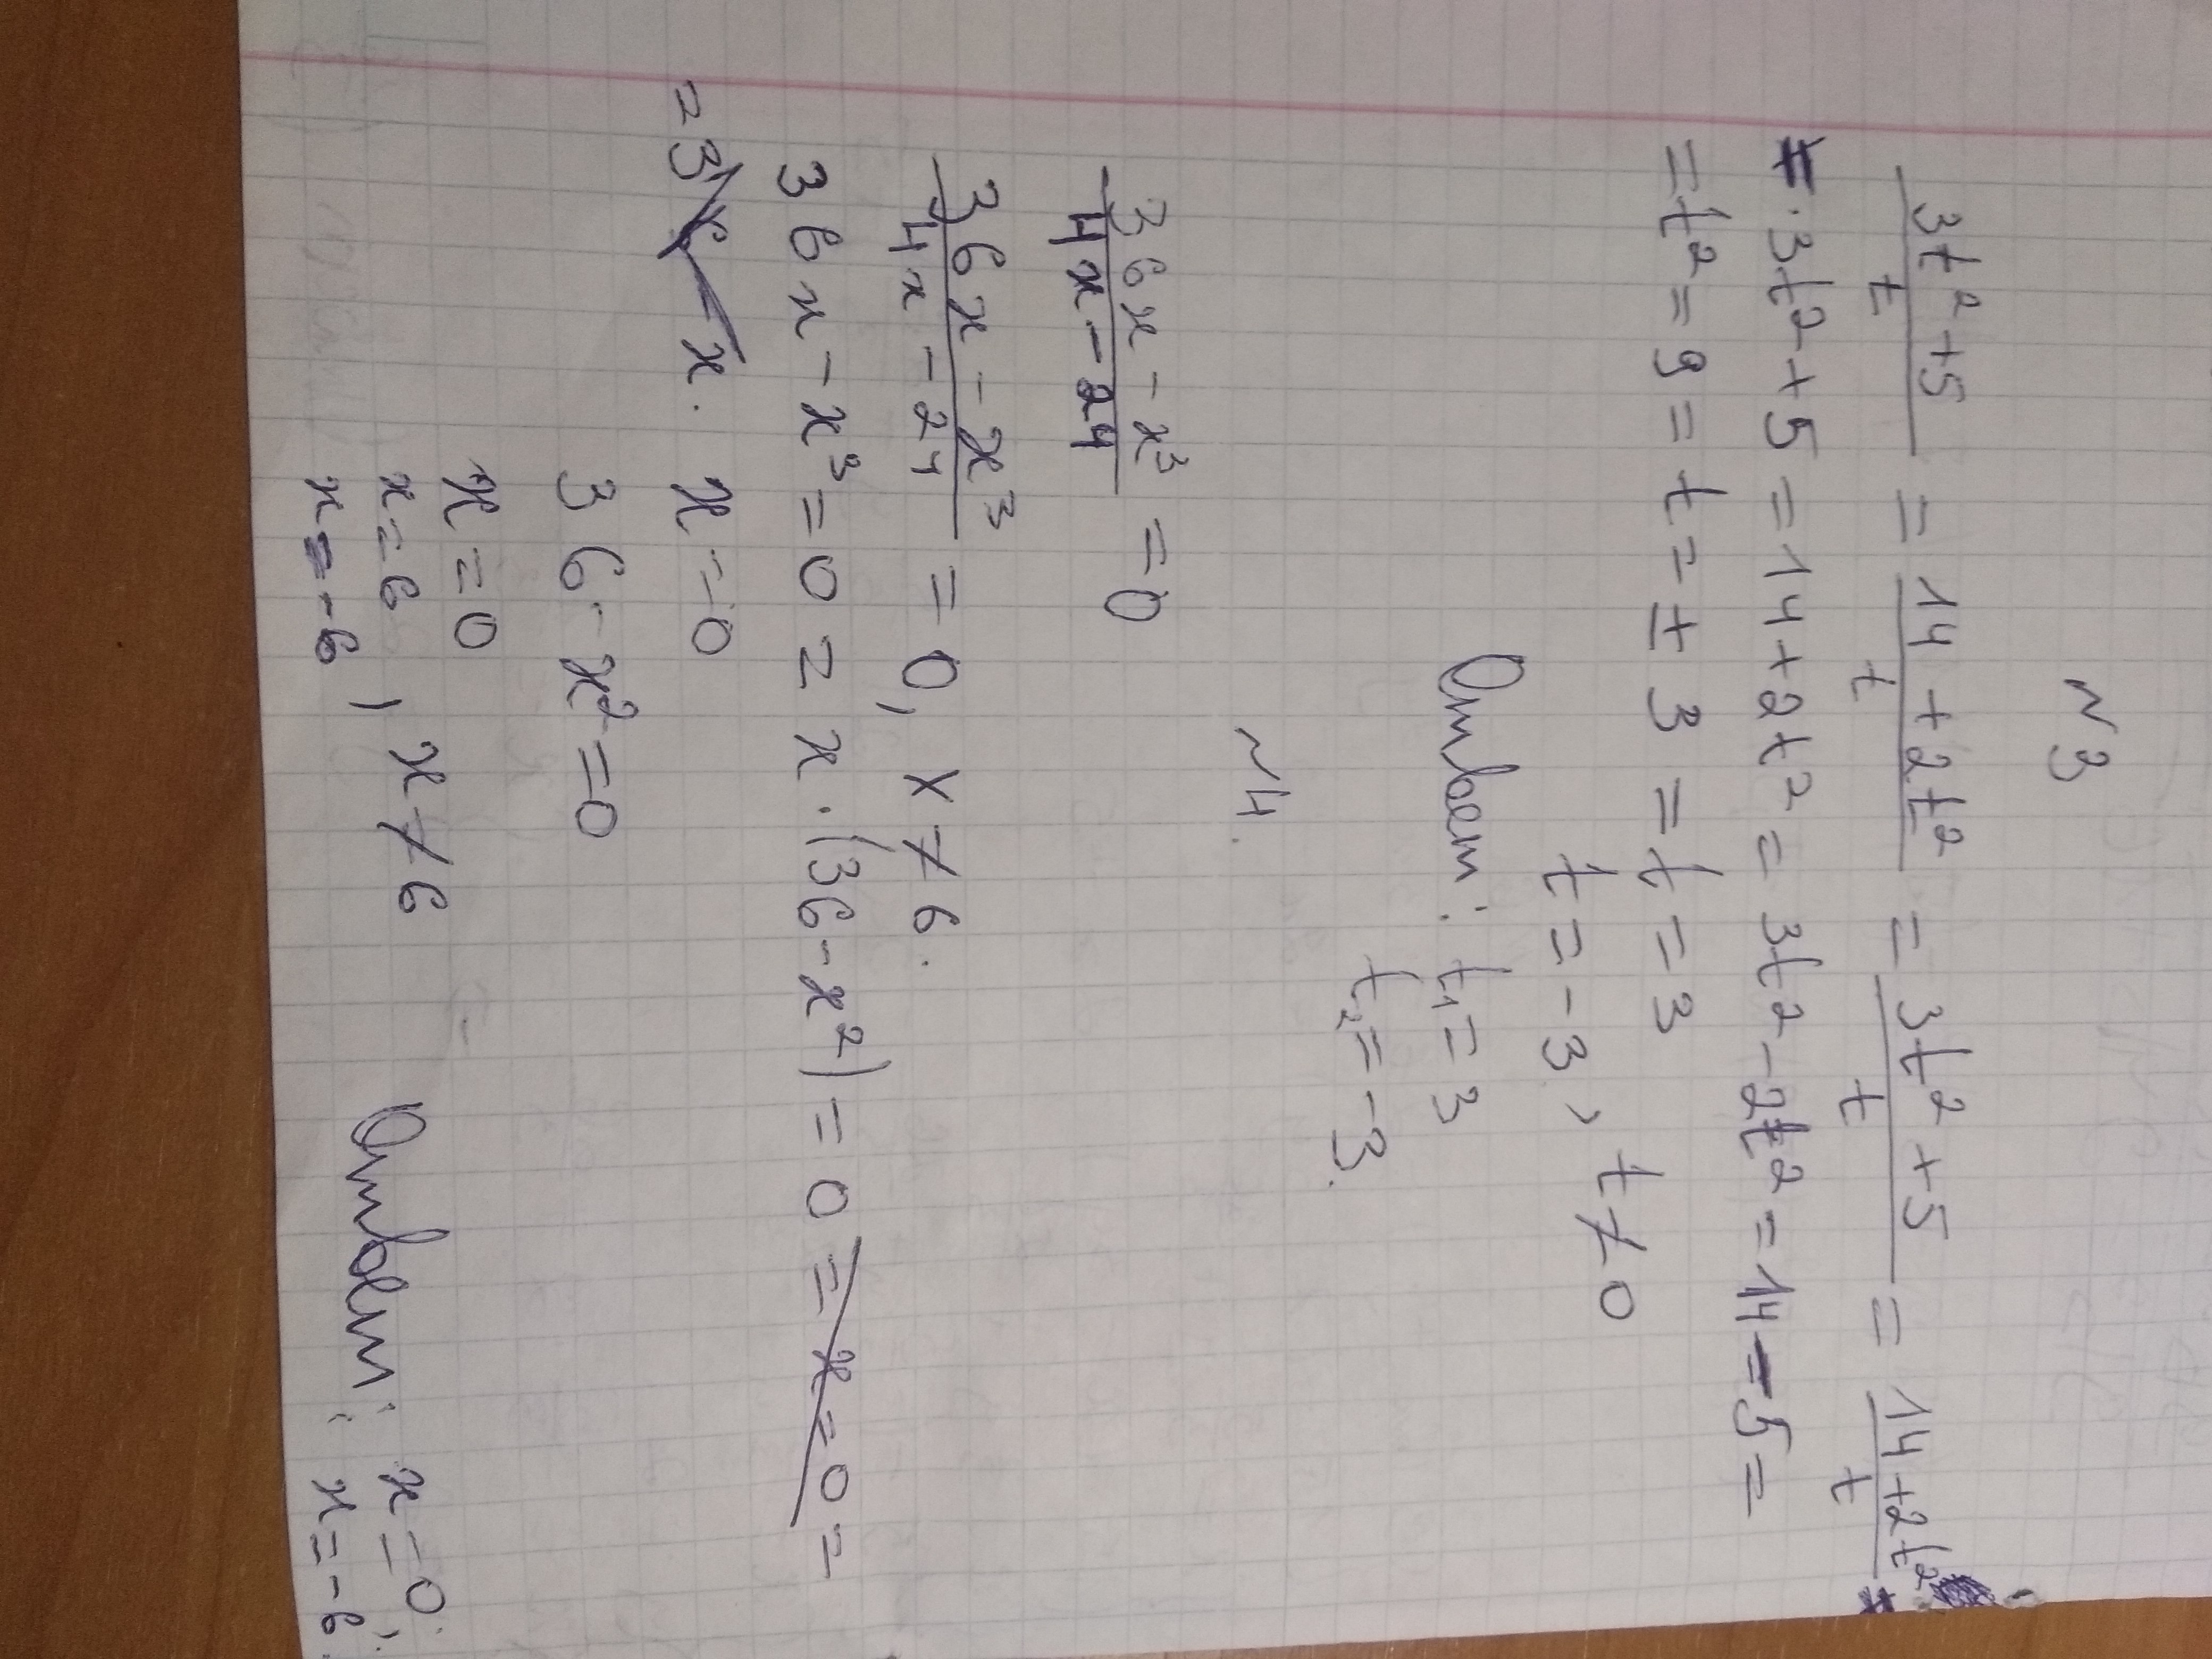 ~3
3t²+5/t = 14+2t²/t = 3t²+5/t = 14+2t²/t
= · 3t²+5=14+2t²= 3t²-2t²=14-5=
=t²=9=t=±3 =t=3
t=-3, t≠0
Ответ: t₁=3
t₂=-3.
~4.
36x-x³/4x-24 =0
36x-x³/4x-24 =0, x≠6.
36x-x³=0 = x·(36-x²)=0 =x=0=
=3 x. x=0
36-x²=0
x=0
x=6 , x≠6
x=-6
Ответ: x=0;
x=-6.